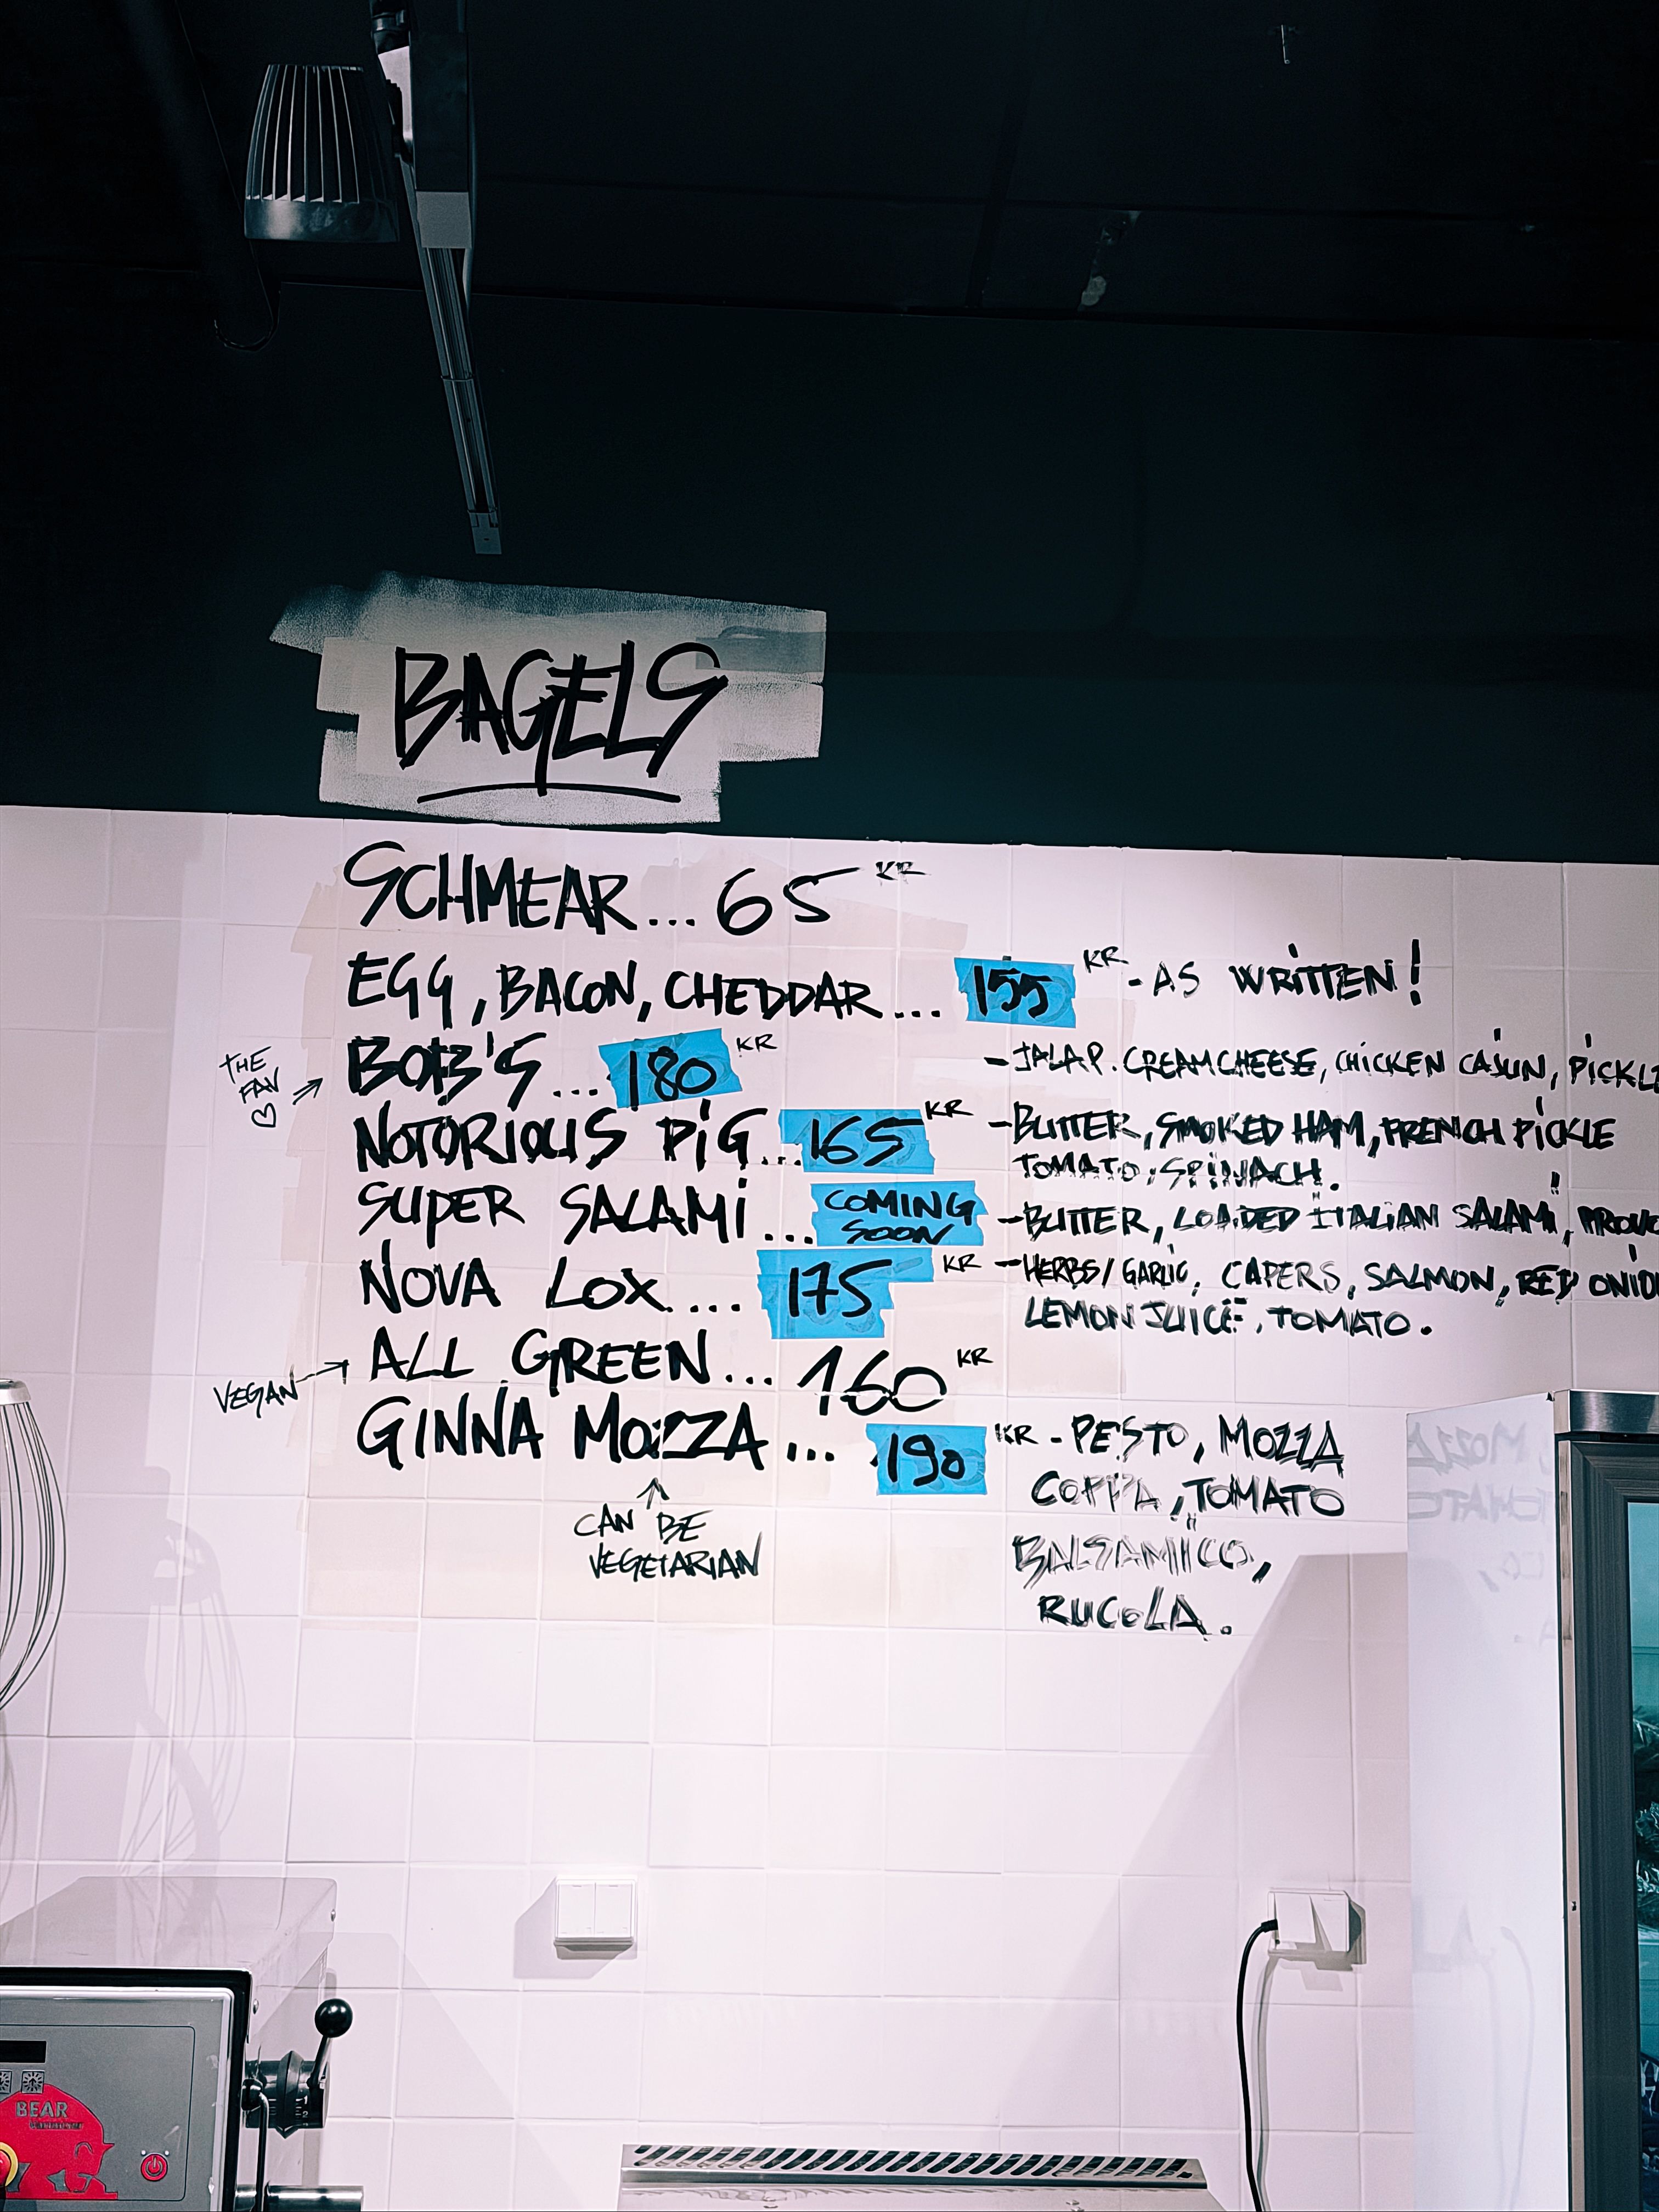 BAGELS
SCHMEAR... 65 KR
EGG, BACON, CHEDDAR... 155 KR - AS WRITTEN!
THE FAV ♡ → BOB'S... 180 KR - JALAP. CREAMCHEESE, CHICKEN CAJUN, PICKLE
NOTORIOUS PIG... 165 KR - BUTTER, SMOKED HAM, FRENCH PICKLE
TOMATO, SPINACH.
SUPER SALAMI... COMING SOON - BUTTER, LOADED ITALIAN SALAMI,
NOVA LOX.... 175 KR - HERBS/GARLIC, CAPERS, SALMON, RED ONION
LEMON JUICE, TOMATO.
VEGAN → ALL GREEN... 160 KR
GINNA MOZZA... 190 KR - PESTO, MOZZA
COPPA, TOMATO
BALSAMICO,
RUCOLA.
↑
CAN BE
VEGETARIAN
BEAR